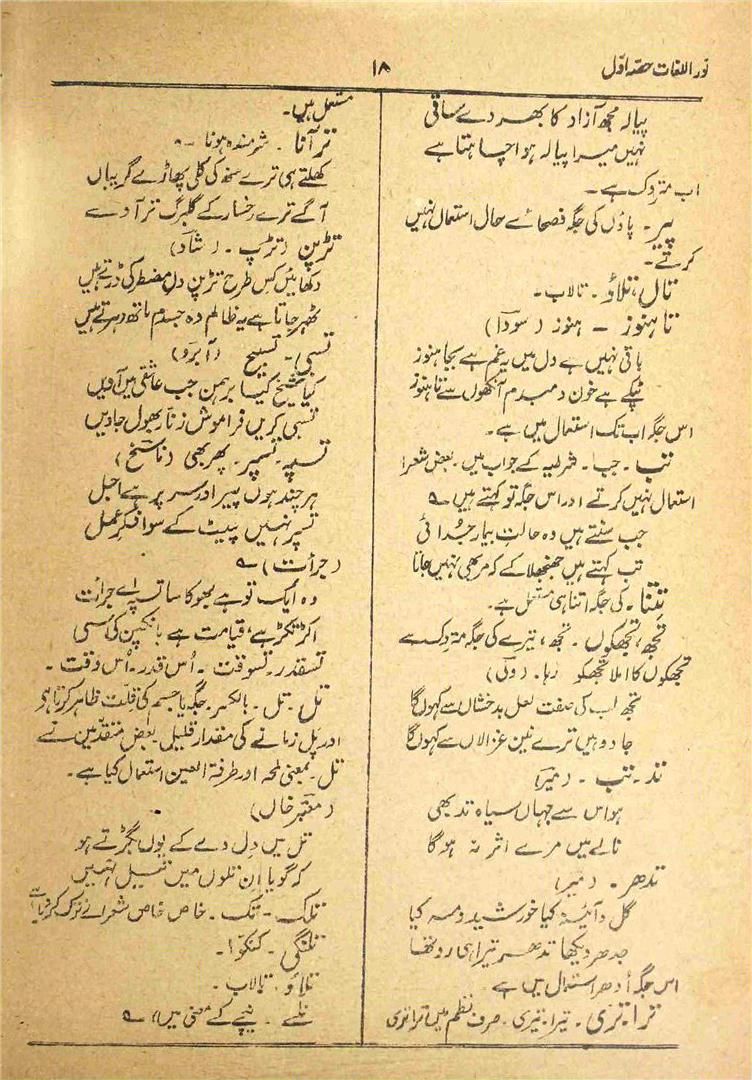 نور اللغات حصّہ اوّل
۱۸
پیالہ مجھ آزاد کا بھر دے ساقی
نہیں میرا پیالہ ہوا چاہتا ہے
اب متروک ہے۔
پیر۔ پاؤں کی جگہ فصحائے حال استعمال نہیں
کرتے۔
تال، تلاؤ۔ تالاب۔
تا ہنوز ۔ ہنوز (سوداؔ)
باقی نہیں ہے دل میں یہ غم ہے بجا ہنوز
ٹپکے ہے خون دمبدم آنکھوں سے تا ہنوز
اس جگہ اب تک استعمال میں ہے۔
تب۔ جب۔ شرطیہ کے جواب میں۔ بعض شعرا
استعمال نہیں کرتے اور اس جگہ تو کہتے ہیں ؎
جب سنتے ہیں وہ حالتِ بیمار جُدائی
تب کہتے ہیں جھنجھلا کے کہ مر بھی نہیں جاتا
تِتنا۔ کی جگہ اتنا ہی مستعمل ہے۔
تجھ، تجھکوں۔ تجھ، تیرے کی جگہ متروک ہے
تجھکوں کا املا تجھکو رہا۔ (ولیؔ)
تجھ لب کی صفت لعل بدخشاں سے کہوں گا
جادو ہیں ترے نین غزالاں سے کہوں گا
تد۔ تب۔ (میرؔ)
ہو اس سے جہاں سیاہ تد بھی
نالے میں مرے اثر نہ ہوگا
تدھر۔ (میرؔ)
گل و آئینہ کیا خورشید و مہ کیا
جدھر دیکھا تدھر تیرا ہی رو تھا
اس جگہ اُدھر استعمال میں ہے
ترا۔ تری۔ تیرا۔ تیری۔ صرف نظم میں ترا تری
مستعمل ہیں۔
تر آنا۔ شرمندہ ہونا۔ ؎
کھلتے ہی ترے منہ کی کلی پھاڑے گریباں
آگے ترے رخسار کے گلبرگ تر آوے
تڑپن (تڑپ۔ (شادؔ)
دکھائیں کس طرح تڑپن دلِ مضطر کی ڈرتے ہیں
ٹھہر جاتا ہے یہ ظالم وہ جسدم ہاتھ دھرتے ہیں
تسبی۔ تسبیح (آبروؔ)
کیا شیخ کیا برہمن جب عاشقی میں آویں
تسبی کریں فراموش زنار بھول جاویں
تسپہ۔ تسپر۔ پھر بھی (ناسخؔ)
ہر چند ہوں پیر اور سر پر ہے اجل
تسپر نہیں پیٹ کے سوا فکرِ عمل
(جرأتؔ) ؎
وہ ایک تو ہے بھبوکا سا تسپہ اے جرأت
اکڑ تکڑ ہے، قیامت ہے بانکپن کی سی
تسقدر۔ تسوقت۔ اُس قدر۔ اُس وقت۔
تل۔ تل۔ بالکسر۔ جگہ یا جسم کی قلت ظاہر کرتا ہو
اور پل زمانے کی مقدار قلیل۔ بعض متقدّمین نے
تل۔ بمعنی لمحہ اور طرفۃ العین استعمال کیا ہے۔
(معتبر خاں)
تل میں دل دے کے یوں بگڑتے ہو
کہ گویا اِن تلوں میں تیل نہیں
تلک۔ تک۔ خاص خاص شعرا نے ترک کردیا ہے
تلنگی۔ کنکوّا۔
تلاؤ۔ تالاب۔
تلے۔ نیچے کے معنی میں، ؎